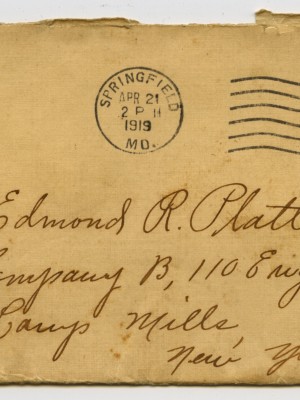 SPRINGFIELD
APR 21
2 P M
1919
MO.
Edmond R. Platt
Company B, 110 Eng
Camp Mills
New Y